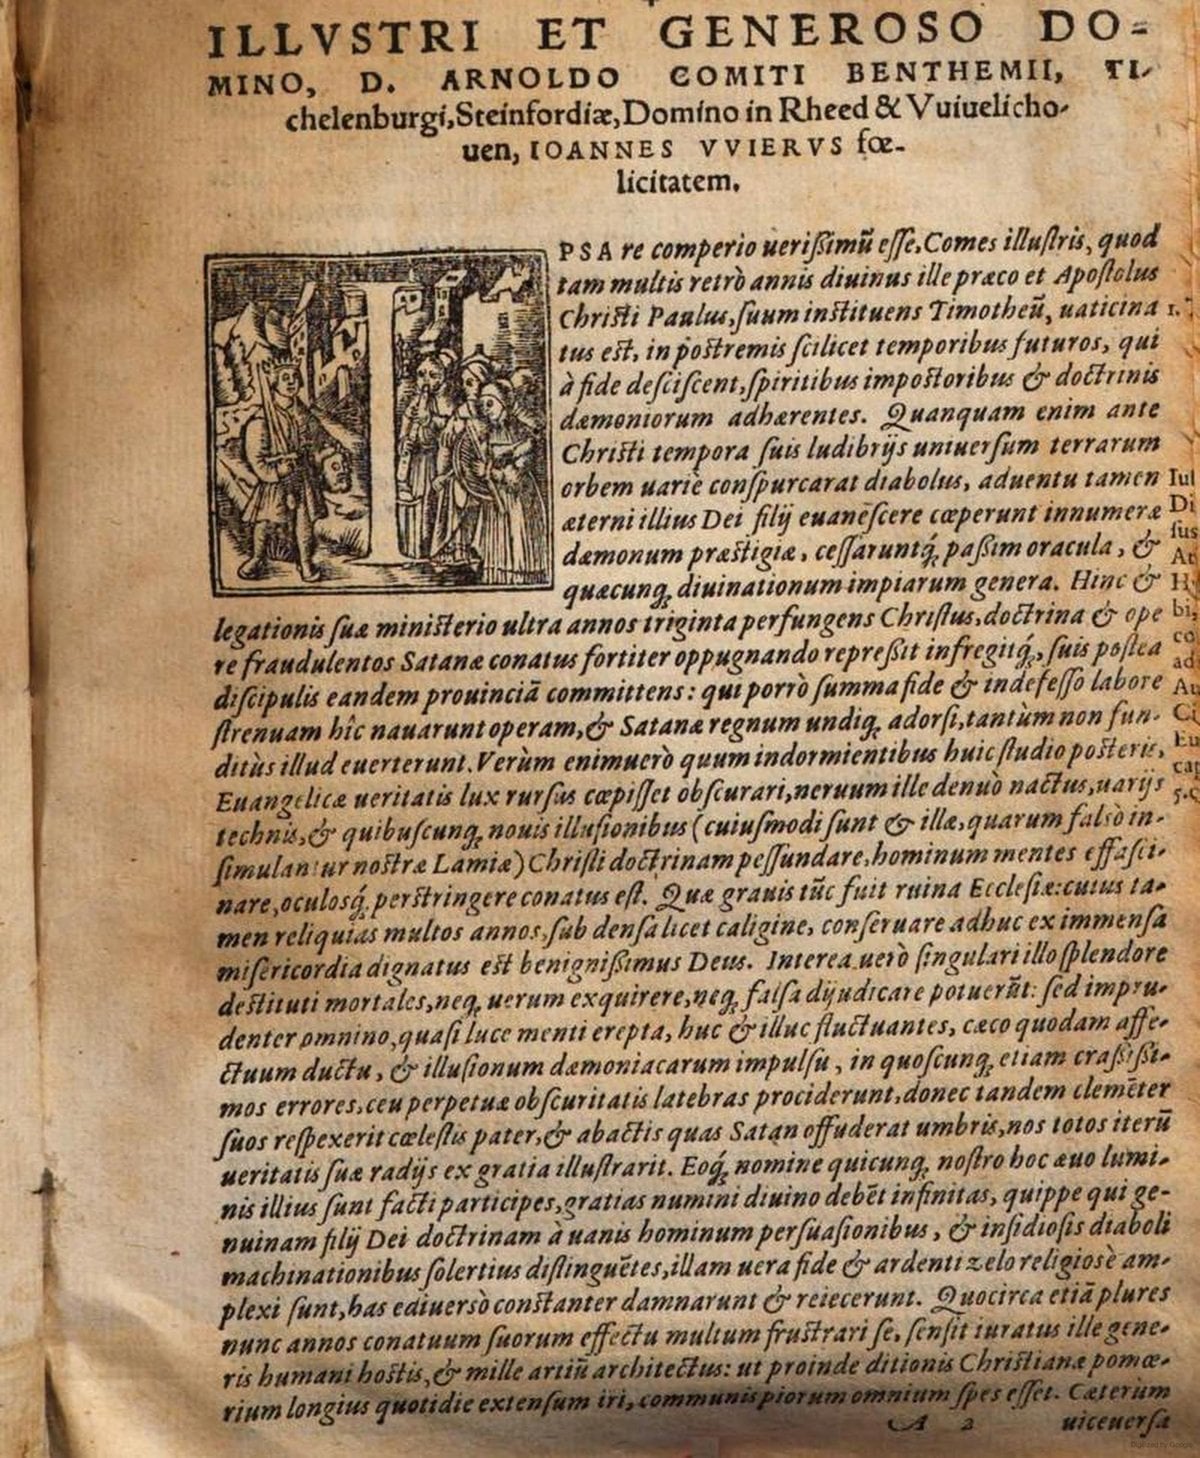 ILLVSTRI ET GENEROSO DO-
MINO, D. ARNOLDO COMITI BENTHEMII, TI-
chelenburgi, Steinfordiæ, Domino in Rheed & Vuiuelicho-
uen, IOANNES VVIERVS fœ-
licitatem.
IPSA re comperio ueriſsimũ eſſe, Comes illuſtris, quod
tam multis retrò annis diuinus ille præco et Apoſtolus
Chriſti Paulus, ſuum inſtituens Timotheũ, uaticina
1.
tus eſt, in poſtremis ſcilicet temporibus futuros, qui
à fide deſciſcent, ſpiritibus impoſtoribus & doctrinis
dæmoniorum adhærentes. Quanquam enim ante
Chriſti tempora ſuis ludibrijs uniuerſum terrarum
orbem uariè conſpurcarat diabolus, aduentu tamen
Iul
æterni illius Dei filij euaneſcere cœperunt innumeræ
Di
ſus
dæmonum præſtigiæ, ceſſaruntq́; paſsim oracula, &
Ar
quæcunq; diuinationum impiarum genera. Hinc &
Hy
legationis ſuæ miniſterio ultra annos triginta perfungens Chriſtus, doctrina & ope
bi,
co
re fraudulentos Satanæ conatus fortiter oppugnando repreſsit infregitq́;, ſuis poſtea
ad
diſcipulis eandem prouinciã committens: qui porrò ſumma fide & indefeſſo labore
Au
ſtrenuam hîc nauarunt operam, & Satanæ regnum undiq; adorſi, tantùm non fun-
Ci
ditùs illud euerterunt. Verùm enimuerò quum indormientibus huic ſtudio poſteris,
Eu
cap
Euangelicæ ueritatis lux rurſus cœpiſſet obſcurari, neruum ille denuò nactus, uarijs
5.c
technis, & quibuſcunq; nouis illuſionibus (cuiuſmodi ſunt & illæ, quarum falsò in-
ſimulantur noſtræ Lamiæ) Chriſti doctrinam peſſundare, hominum mentes effaſci-
nare, oculosq́; perſtringere conatus eſt. Quæ grauis tũc fuit ruina Eccleſiæ: cuius ta-
men reliquias multos annos, ſub denſa licet caligine, conſeruare adhuc ex immenſa
miſericordia dignatus eſt benigniſsimus Deus. Interea uerò ſingulari illo ſplendore
deſtituti mortales, neq; uerum exquirere, neq; falſa dijudicare potuerũt: ſed impru-
denter omnino, quaſi luce menti erepta, huc & illuc fluctuantes, cæco quodam affe-
ctuum ductu, & illuſionum dæmoniacarum impulſu, in quoſcunq; etiam craſsiſsi-
mos errores, ceu perpetuæ obſcuritatis latebras prociderunt, donec tandem clemẽter
ſuos reſpexerit cœleſtis pater, & abactis quas Satan offuderat umbris, nos totos iterũ
ueritatis ſuæ radijs ex gratia illuſtrarit. Eoq́; nomine quicunq; noſtro hoc æuo lumi-
nis illius ſunt facti participes, gratias numini diuino debẽt infinitas, quippe qui ge-
nuinam filij Dei doctrinam à uanis hominum perſuaſionibus, & inſidioſis diaboli
machinationibus ſolertius diſtinguẽtes, illam uera fide & ardenti zelo religiosè am-
plexi ſunt, has ediuersò conſtanter damnarunt & reiecerunt. Quocirca etiã plures
nunc annos conatuum ſuorum effectu multum fruſtrari ſe, ſenſit iuratus ille gene-
ris humani hoſtis, & mille artiũ architectus: ut proinde ditionis Chriſtianæ pomœ-
rium longius quotidie extenſum iri, communis piorum omnium ſpes eſſet. Cæterùm
A 2 uiceuerſa
Digitized by Google